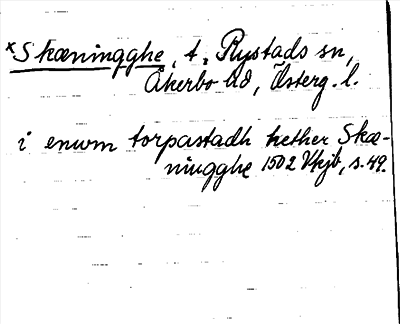 ×Skæningghe, t., Rystads sn,
Åkerbo hd, Österg. l.
i enwm torpastadh hether Skæ-
ningghe 1502 Vkjb, s. 49.